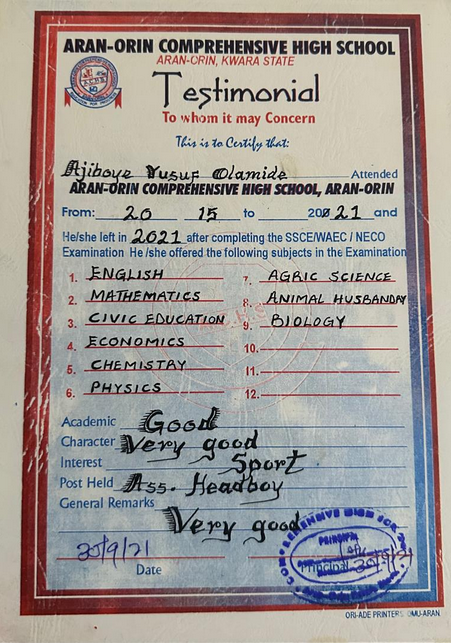 ARAN-ORIN COMPREHENSIVE HIGH SCHOOL
ARAN-ORIN, KWARA STATE
Testimonial
To whom it may Concern
This is to Certify that:
Ajiboye Yusuf Olamide Attended
ARAN-ORIN COMPREHENSIVE HIGH SCHOOL, ARAN-ORIN
From: 20 15 to 2021 and
He/she left in 2021 after completing the SSCE/WAEC / NECO
Examination He /she offered the following subjects in the Examination
1. ENGLISH 7. AGRIC SCIENCE
2. MATHEMATICS 8. ANIMAL HUSBANDRY
3. CIVIC EDUCATION 9. BIOLOGY
4. ECONOMICS 10.
5. CHEMISTRY 11.
6. PHYSICS 12.
Academic Good
Character Very good
Interest Sport
Post Held Ass. Headboy
General Remarks
Very good
30/9/21 30/9/21
Date Principal
PRINCIPAL
ORI-ADE PRINTERS OMU-ARAN.